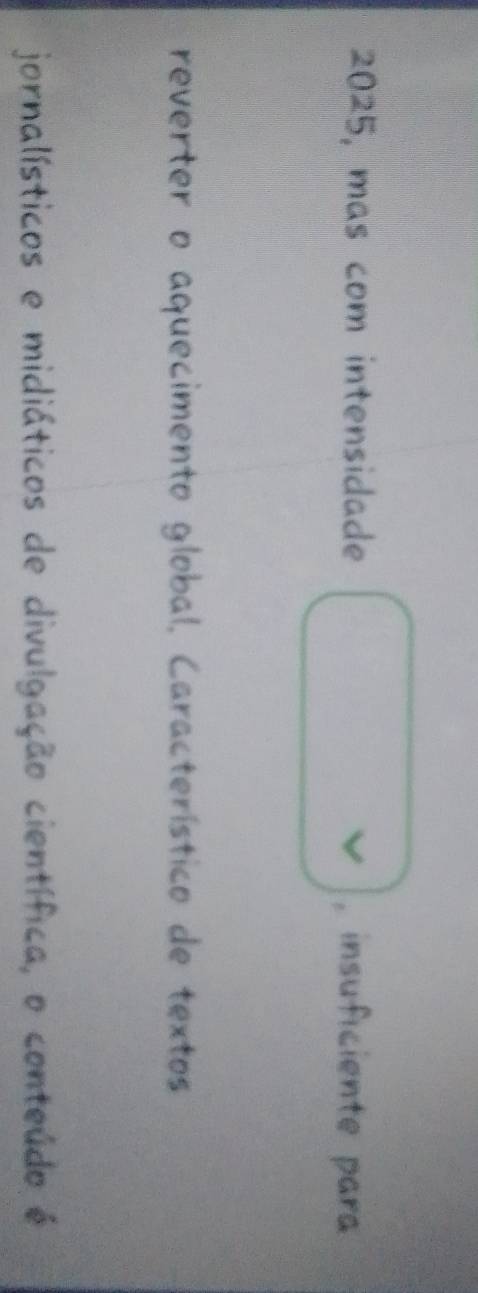 2025, mas com intensidade , insuficiente para
reverter o aquecimento global. Característico de textos
jornalísticos e midiáticos de divulgação científica, o conteúdo é